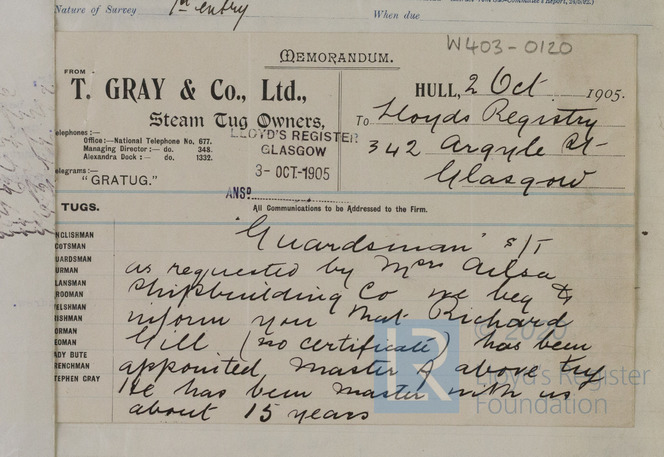 Nature of Survey
1st entry
When due
W403-0120
MEMORANDUM.
FROM
T. GRAY & Co., Ltd.,
Steam Tug Owners,
elephones :—
Office:—National Telephone No. 677.
Managing Director:— do. 348.
Alexandra Dock:— do. 1332.
elegrams:—
"GRATUG."
HULL, 2 Oct 1905.
To Lloyds Registry
342 Argyle St-
Glasgow
LLOYD'S REGISTER
GLASGOW
3-OCT-1905
ANSD
All Communications to be Addressed to the Firm.
TUGS.
NGLISHMAN
COTSMAN
UARDSMAN
URMAN
LANSMAN
ROOMAN
ELSHMAN
RISHMAN
ORMAN
EOMAN
ADY BUTE
RENCHMAN
TEPHEN GRAY
'Guardsman' S/T
as requested by Mssrs Ailsa
Shipbuilding Co we beg to
inform you that Richard
Gill (no certificate) has been
appointed master of above tug
He has been master with us
about 15 years
LR
Lloyd's Register
Foundation